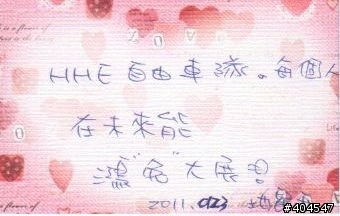 HHE自由車隊。每個人
在未來能
"兔"大展
2011.
#404547